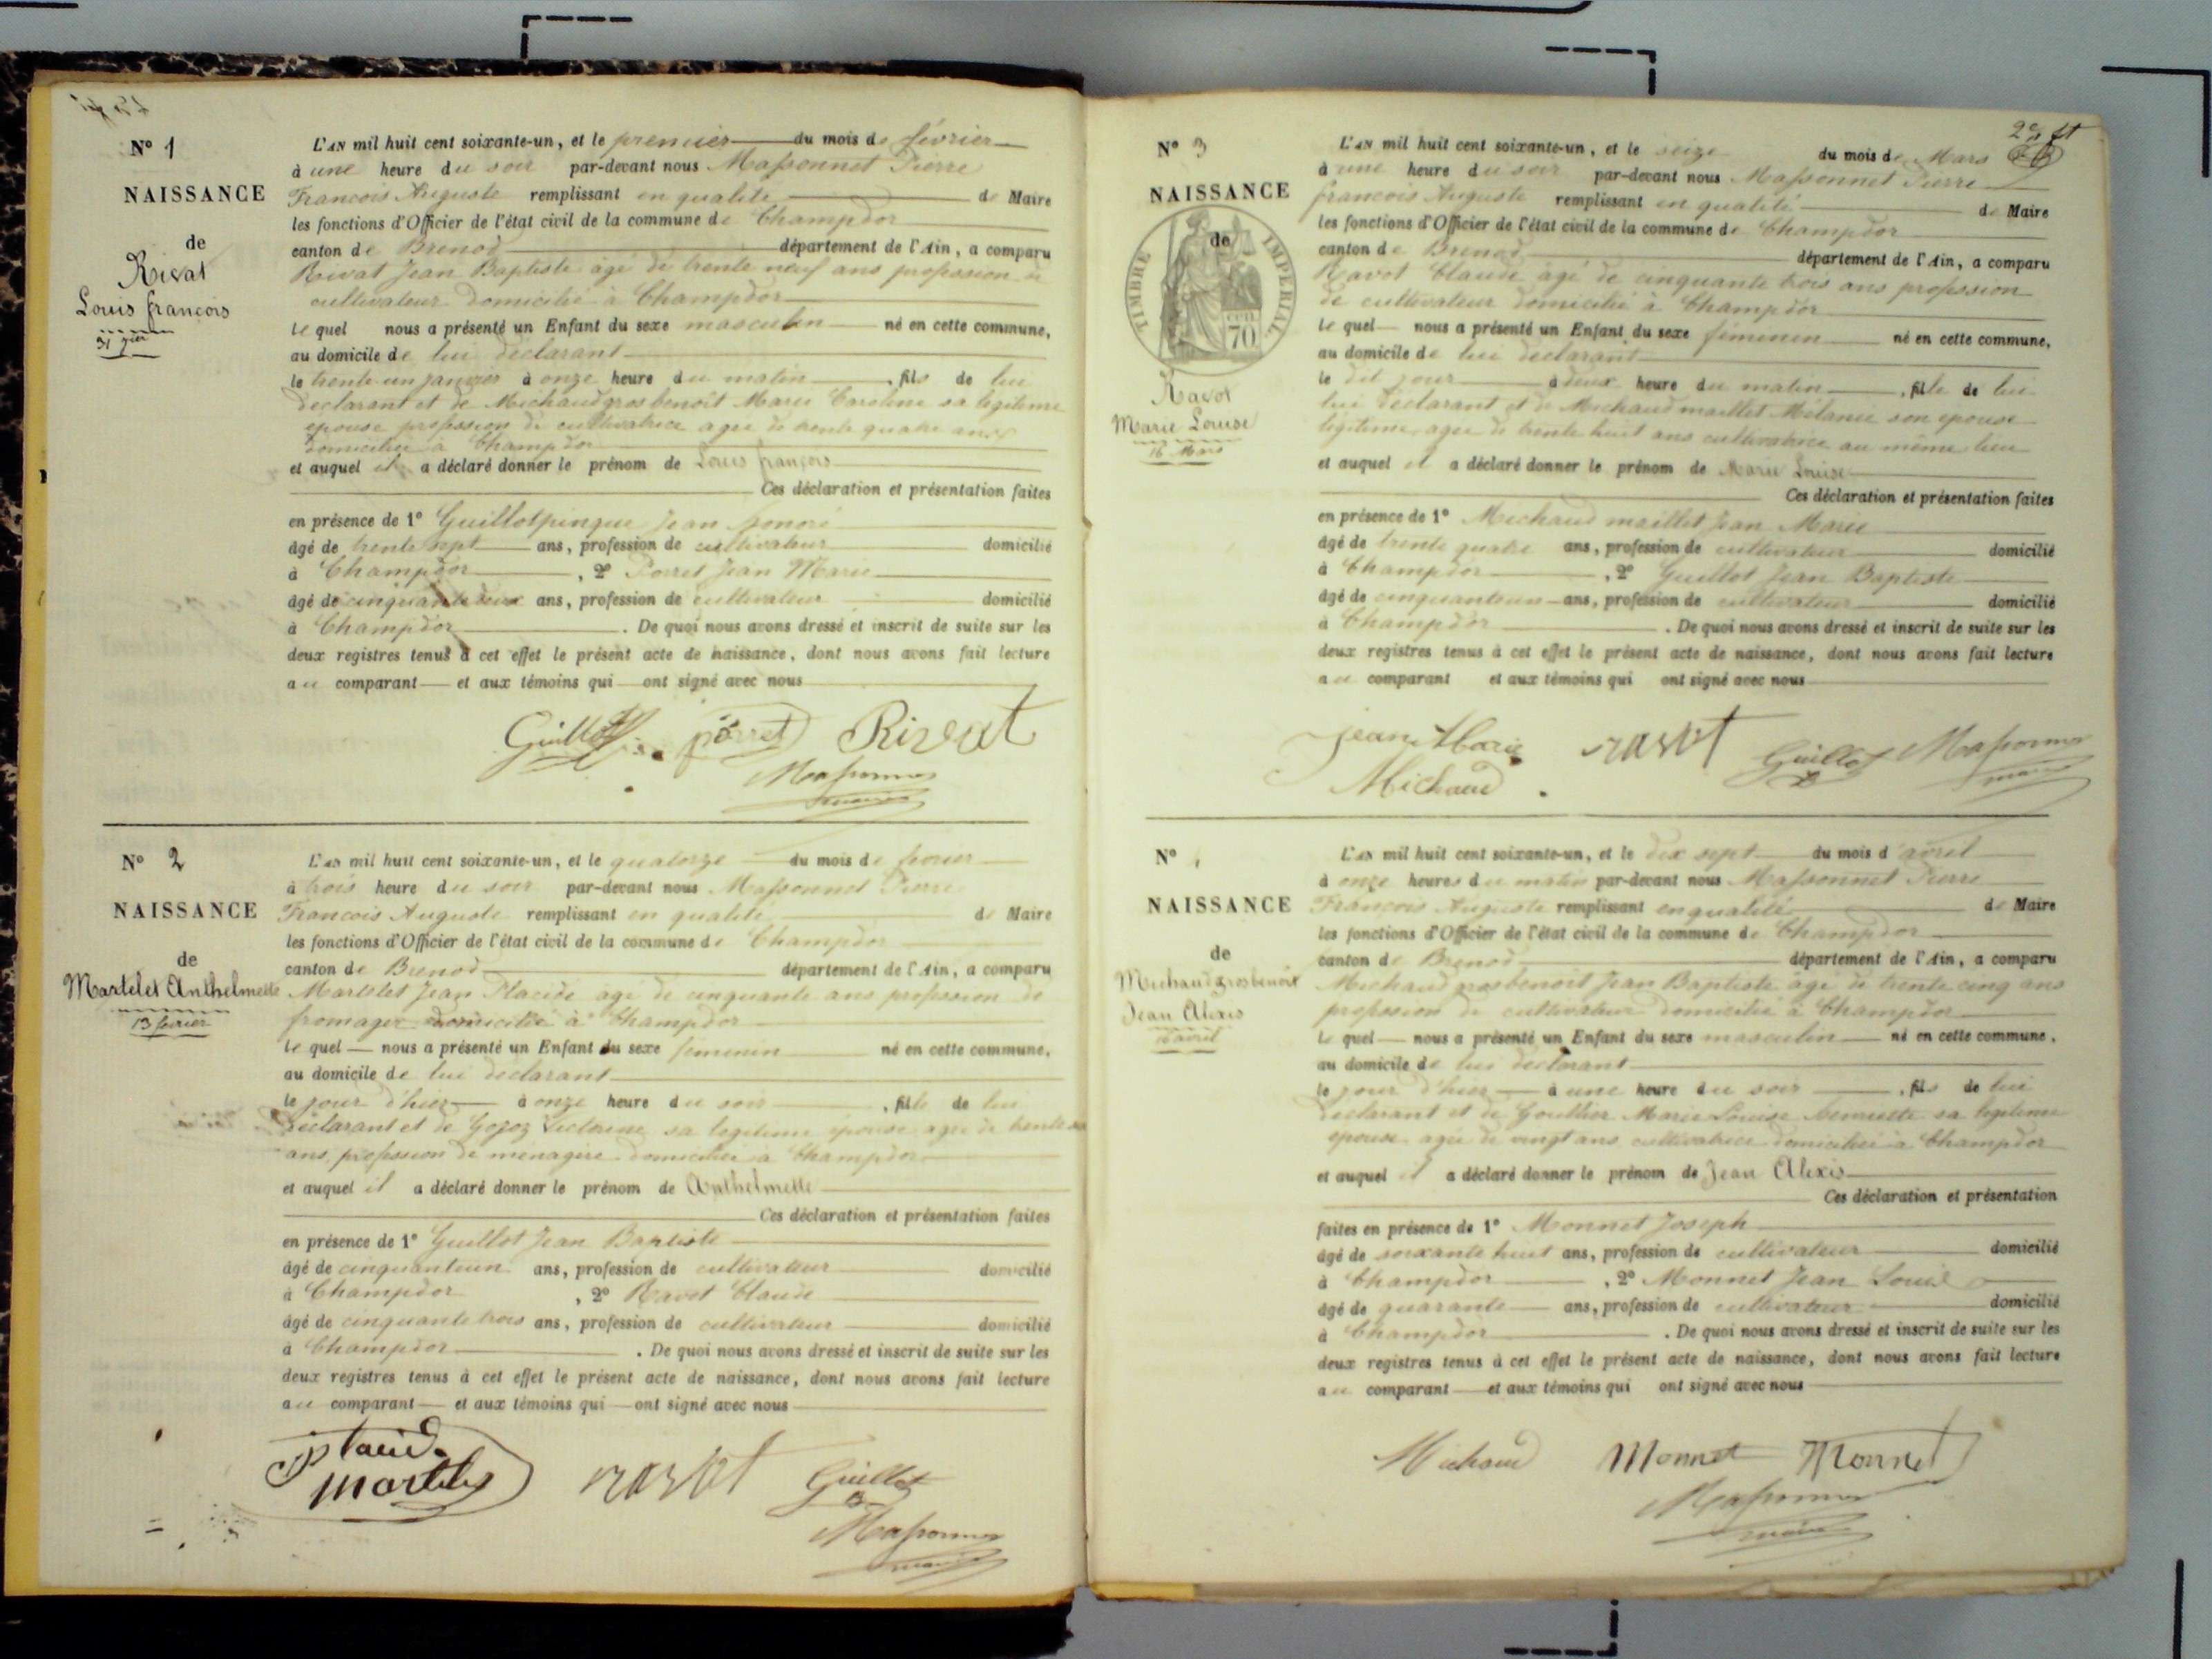 N° 1
NAISSANCE
de
Rivat
Louis françois
31 jvier
L'AN mil huit cent soixante-un, et le premier du mois de février
à une heure du soir par-devant nous Massonnet Pierre
Francois Auguste remplissant en qualité de Maire
les fonctions d'Officier de l'état civil de la commune de Champdor
canton de Brenod département de l'Ain, a comparu
Rivat Jean Baptiste âgé de trente neuf ans profession de
cultivateur domicilié à Champdor
le quel nous a présenté un Enfant du sexe masculin né en cette commune,
au domicile de lui déclarant
le trente un janvier à onze heure du matin , fils de lui
déclarant et de Michaudgrosbenoit Marie Caroline sa légitime
épouse profession de cultivatrice agée de trente quatre ans
domiciliée à Champdor
et auquel il a déclaré donner le prénom de Louis françois
Ces déclaration et présentation faites
en présence de 1° Guillotpingue Jean honoré
âgé de trente sept ans, profession de cultivateur domicilié
à Champdor , 2° Porret Jean Marie
âgé de cinquante deux ans, profession de cultivateur domicilié
à Champdor . De quoi nous avons dressé et inscrit de suite sur les
deux registres tenus à cet effet le présent acte de naissance, dont nous avons fait lecture
au comparant et aux témoins qui ont signé avec nous
Guillot porret Rivat
Massonnet
maire
N° 2
NAISSANCE
de
Martelet Anthelmette
13 fevrier
L'AN mil huit cent soixante-un, et le quatorze du mois de fevrier
à trois heure du soir par-devant nous Massonnet Pierre
Francois Auguste remplissant en qualité de Maire
les fonctions d'Officier de l'état civil de la commune de Champdor
canton de Brenod département de l'Ain, a comparu
Martelet Jean Placide âgé de cinquante ans profession de
fromager domicilié à Champdor
le quel nous a présenté un Enfant du sexe féminin né en cette commune,
au domicile de lui déclarant
le jour d'hier à onze heure du soir , fille de lui
Déclarant et de Gojoz Victorine sa légitime épouse agée de trente
ans, profession de ménagère domiciliée à Champdor
et auquel il a déclaré donner le prénom de Anthelmette
Ces déclaration et présentation faites
en présence de 1° Guillot Jean Baptiste
âgé de cinquanteun ans, profession de cultivateur domicilié
à Champdor , 2° Ravot Claude
âgé de cinquante trois ans, profession de cultivateur domicilié
à Champdor . De quoi nous avons dressé et inscrit de suite sur les
deux registres tenus à cet effet le présent acte de naissance, dont nous avons fait lecture
au comparant et aux témoins qui ont signé avec nous
Placide
Martelet ravot Guillot
Massonnet
maire
2e ft
N° 3
NAISSANCE
de
TIMBRE IMPERIAL
CEN
70
Ravot
Marie Louise
16 Mars
L'AN mil huit cent soixante-un, et le seize du mois de Mars
à une heure du soir par-devant nous Massonnet Pierre
francois Auguste remplissant en qualité de Maire
les fonctions d'Officier de l'état civil de la commune de Champdor
canton de Brenod département de l'Ain, a comparu
Ravot Claude âgé de cinquante trois ans profession
de cultivateur domicilié à Champdor
le quel nous a présenté un Enfant du sexe féminin né en cette commune,
au domicile de lui déclarant
le dit jour à deux heure du matin , fille de lui
lui déclarant et de Michaudmaillet Mélanie son epouse
légitime agée de trente huit ans cultivatrice au même lieu
et auquel il a déclaré donner le prénom de Marie Louise
Ces déclaration et présentation faites
en présence de 1° Michaud maillet Jean Marie
âgé de trente quatre ans, profession de cultivateur domicilié
à Champdor , 2° Guillot Jean Baptiste
âgé de cinquanteun ans, profession de cultivateur domicilié
à Champdor . De quoi nous avons dressé et inscrit de suite sur les
deux registres tenus à cet effet le présent acte de naissance, dont nous avons fait lecture
au comparant et aux témoins qui ont signé avec nous
jean Marie ravot Guillot Massonnet
Michaud maire
N°
NAISSANCE
de
Michaudgrosbenoit
Jean Alexis
avril
L'AN mil huit cent soixante-un, et le dix sept du mois d'avril
à onze heures du matin par-devant nous Massonnet Pierre
François Auguste remplissant en qualité de Maire
les fonctions d'Officier de l'état civil de la commune de Champdor
canton de Brenod département de l'Ain, a comparu
Michaudgrosbenoit Jean Baptiste âgé de trente cinq ans
profession de cultivateur domicilié à Champdor
le quel nous a présenté un Enfant du sexe masculin né en cette commune,
au domicile de lui déclarant
le jour d'hier à une heure du soir , fils de lui
déclarant et de Gouttier Marie Louise henriette sa légitime
epouse agée de vingt ans cultivatrice domiciliée à Champdor
et auquel il a déclaré donner le prénom de Jean Alexis
Ces déclaration et présentation
faites en présence de 1° Monnet Joseph
âgé de soixante huit ans, profession de cultivateur domicilié
à Champdor , 2° Monnet Jean Louis
âgé de quarante ans, profession de cultivateur domicilié
à Champdor . De quoi nous avons dressé et inscrit de suite sur les
deux registres tenus à cet effet le présent acte de naissance, dont nous avons fait lecture
au comparant et aux témoins qui ont signé avec nous
Michaud Monnet Monnet
Massonnet
maire